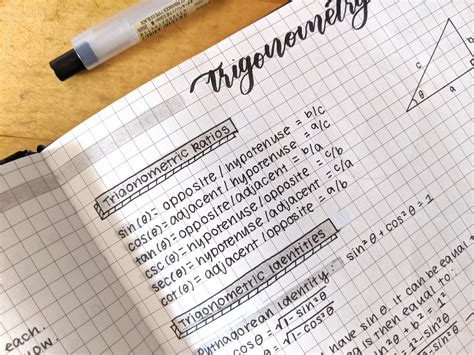 Trigonometry
c
θ
a
Trigonometric Ratios
sin(θ)= opposite / hypotenuse = b/c
cos(θ)= adjacent / hypotenuse = a/c
tan(θ)= opposite/adjacent = b/a
csc(θ)= hypotenuse/opposite = c/b
sec(θ)= hypotenuse/adjacent = c/a
cot(θ)= adjacent /opposite = a/b
Trigonometric Identities
Pythagorean identity: sin²θ + cos²θ = 1
= √1-sin²θ
= √1-cos²θ
have sinθ. it can be
is then equal to:
each.